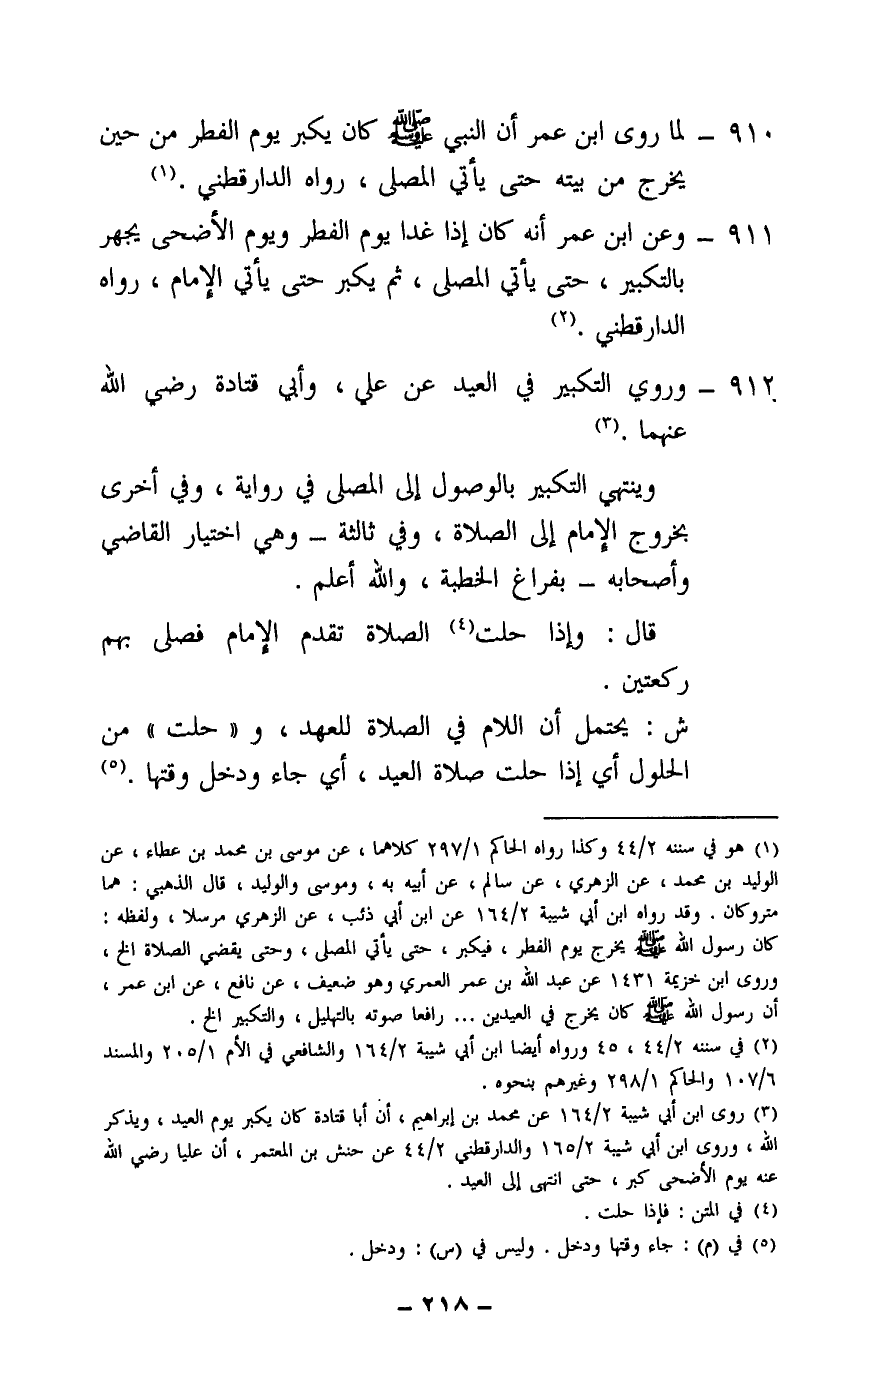 ٩١٠ ـ لما روى ابن عمر أن النبي ﷺ كان يكبر يوم الفطر من حين
يخرج من بيته حتى يأتي المصلى ، رواه الدارقطني .(١)
٩١١ ـ وعن ابن عمر أنه كان إذا غدا يوم الفطر ويوم الأضحى يجهر
بالتكبير ، حتى يأتي المصلى ، ثم يكبر حتى يأتي الإمام ، رواه
الدارقطني .(٢)
٩١٢ ـ وروي التكبير في العيد عن علي ، وأبي قتادة رضي الله
عنهما .(٣)
وينتهي التكبير بالوصول إلى المصلى في رواية ، وفي أخرى
بخروج الإمام إلى الصلاة ، وفي ثالثة ـ وهي اختيار القاضي
وأصحابه ـ بفراغ الخطبة ، والله أعلم .
قال : وإذا حلت(٤) الصلاة تقدم الإمام فصلى بهم
ركعتين .
ش : يحتمل أن اللام في الصلاة للعهد ، و « حلت » من
الحلول أي إذا حلت صلاة العيد ، أي جاء ودخل وقتها .(٥)
(١) هو في سننه ٤٤/٢ وكذا رواه الحاكم ٢٩٧/١ كلاهما ، عن موسى بن محمد بن عطاء ، عن
الوليد بن محمد ، عن الزهري ، عن سالم ، عن أبيه به ، وموسى والوليد ، قال الذهبي : هما
متروكان . وقد رواه ابن أبي شيبة ١٦٤/٢ عن ابن أبي ذئب ، عن الزهري مرسلا ، ولفظه :
كان رسول الله ﷺ يخرج يوم الفطر ، فيكبر ، حتى يأتي المصلى ، وحتى يقضي الصلاة الخ ،
وروى ابن خزيمة ١٤٣١ عن عبد الله بن عمر العمري وهو ضعيف ، عن نافع ، عن ابن عمر ،
أن رسول الله ﷺ كان يخرج في العيدين ... رافعا صوته بالتهليل ، والتكبير الخ .
(٢) في سننه ٤٤/٢ ، ٤٥ ورواه أيضا ابن أبي شيبة ١٦٤/٢ والشافعي في الأم ٢٠٥/١ والمسند
١٠٧/٦ والحاكم ٢٩٨/١ وغيرهم بنحوه .
(٣) روى ابن أبي شيبة ١٦٤/٢ عن محمد بن إبراهيم ، أن أبا قتادة كان يكبر يوم العيد ، ويذكر
الله ، وروى ابن أبي شيبة ١٦٥/٢ والدارقطني ٤٤/٢ عن حنش بن المعتمر ، أن عليا رضي الله
عنه يوم الأضحى كبر ، حتى انتهى إلى العيد .
(٤) في المتن : فإذا حلت .
(٥) في (م) : جاء وقتها ودخل . وليس في (س) : ودخل .
ـ ٢١٨ ـ